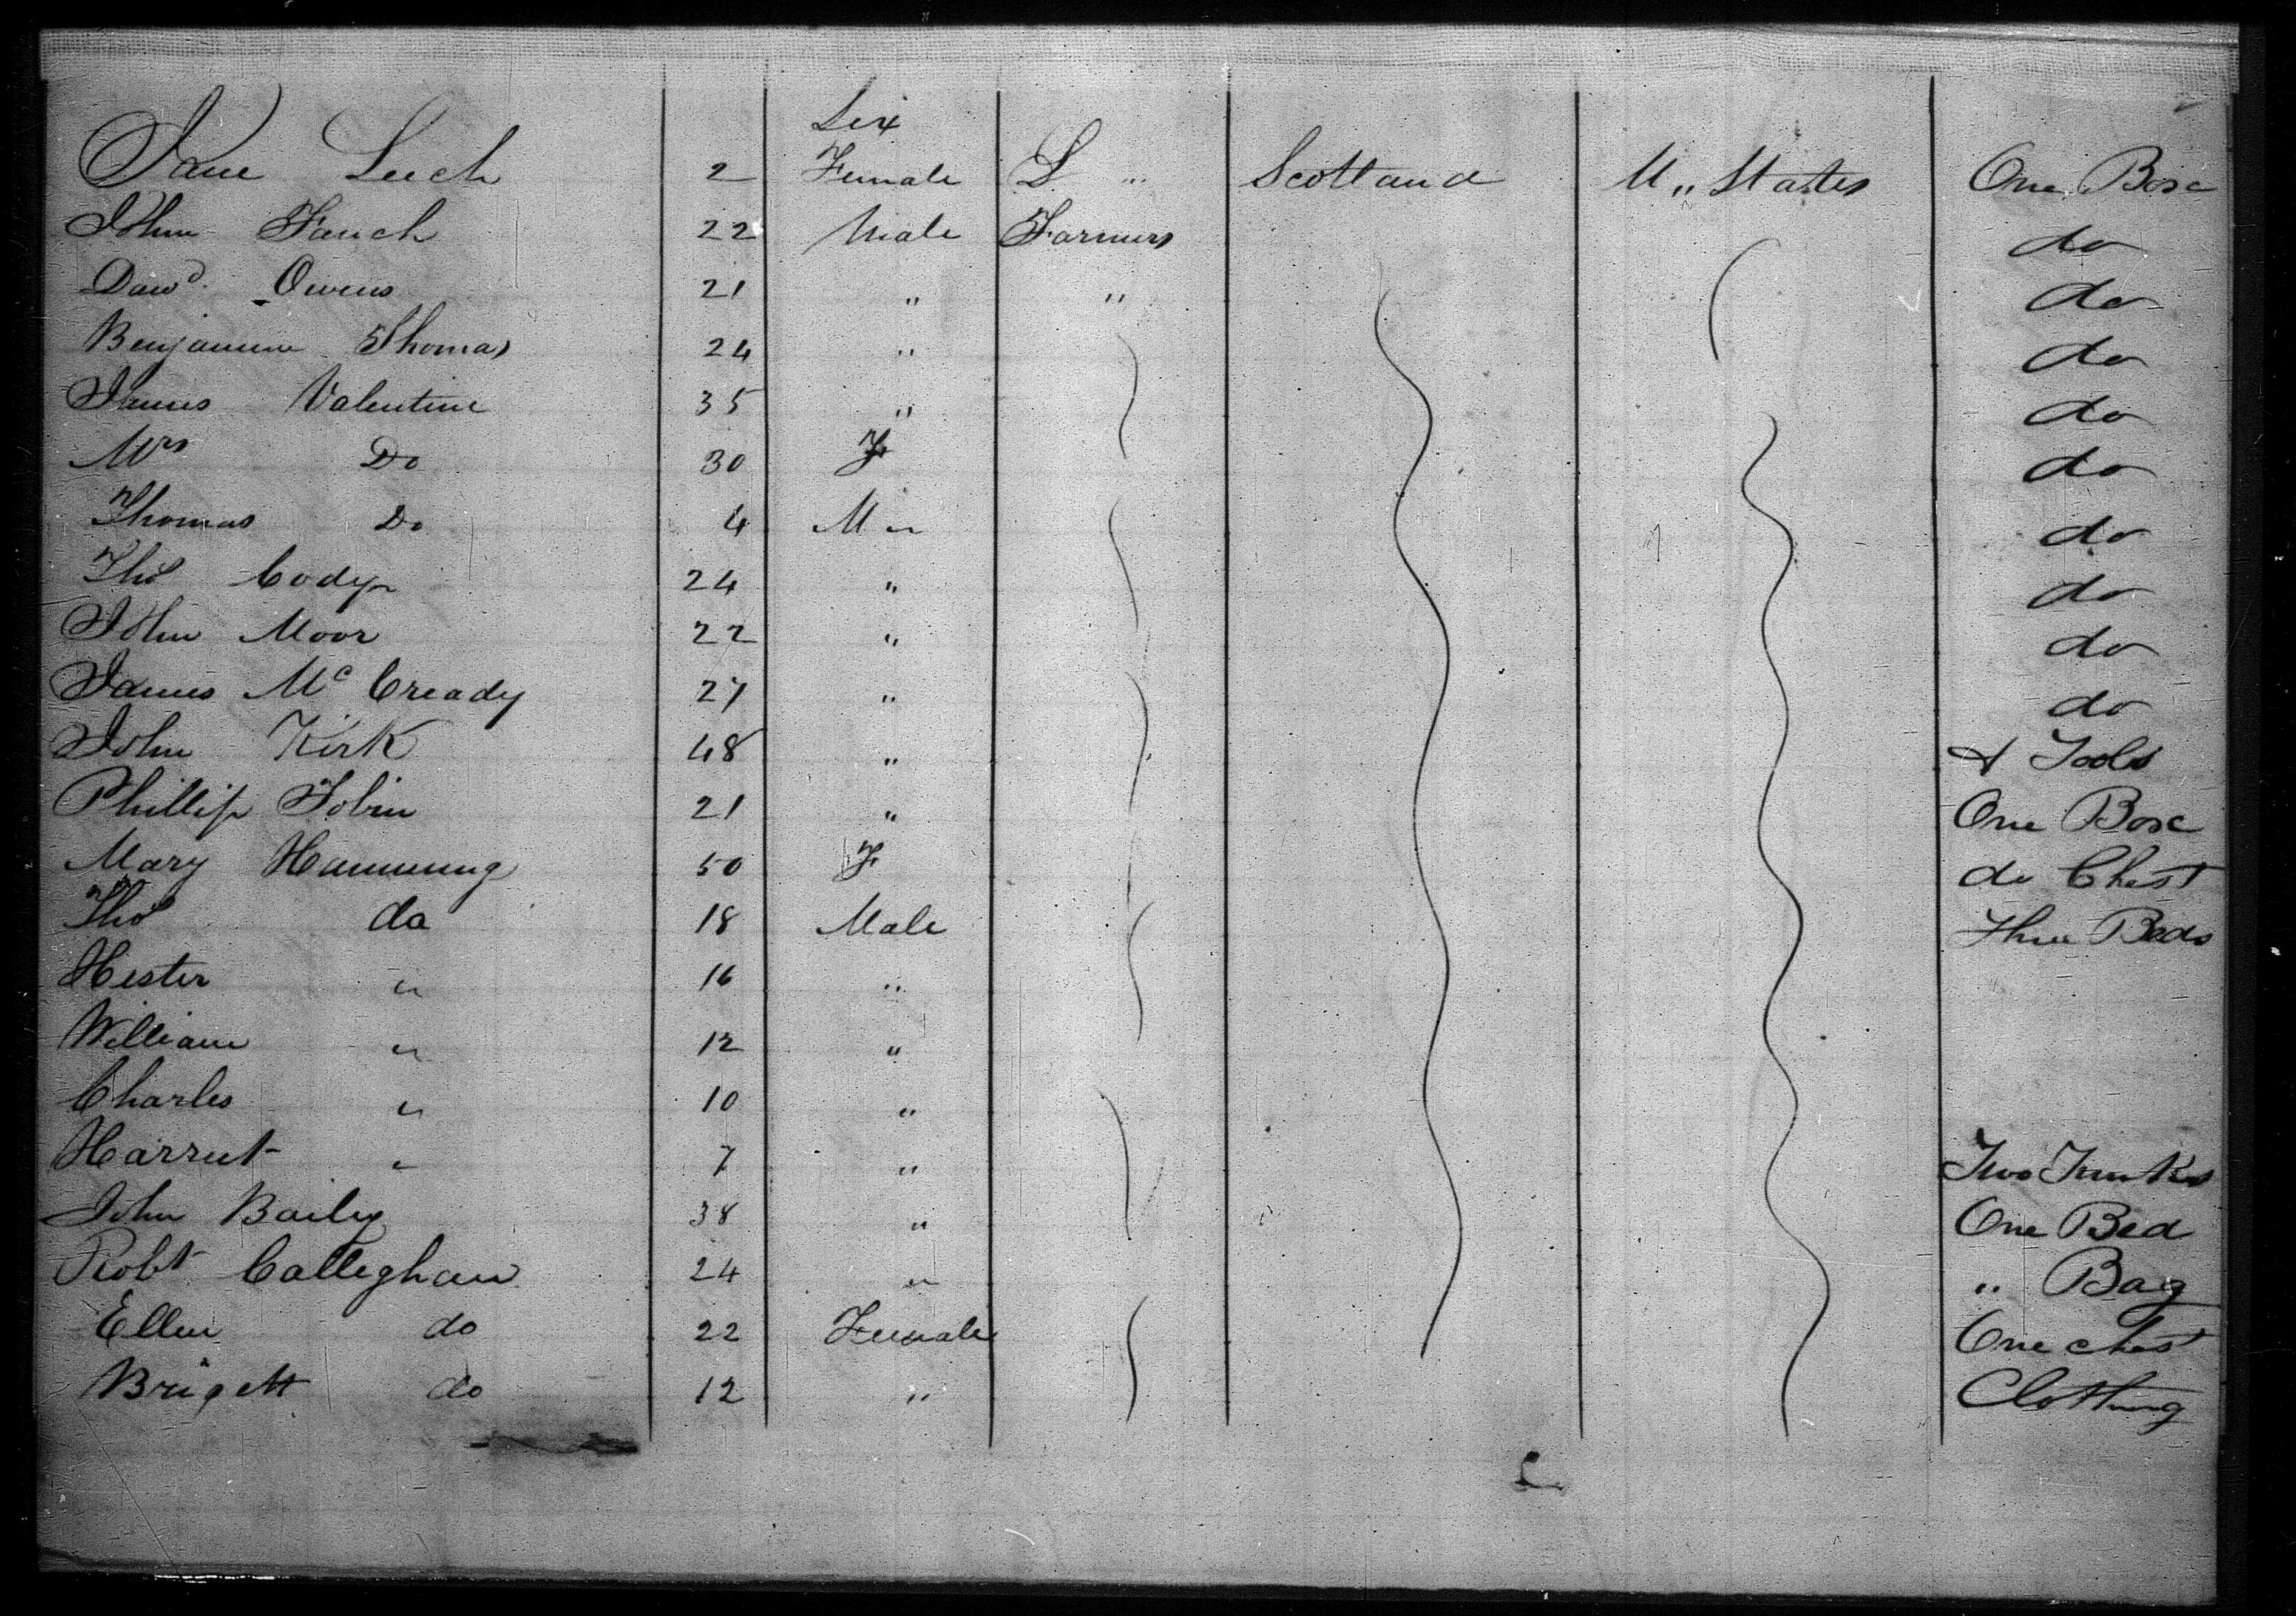 Sex
Jane Leech 2 Female L " Scotland U,, States One Box
John Fauch 22 Male Farmers do
Davd. Owens 21 " " do
Benjamin Thomas 24 " do
James Valentine 35 " do
Mrs Do 30 F do
Thomas Do 4 M " do
Tho Cody 24 " do
John Moor 22 " do
James Mc Cready 27 " do
John Kirk 48 " & Tools
Phillip Tobin 21 " One Box
Mary Hamming 50 F do Chest
Tho do 18 Male Three Beds
Hester " 16 "
William " 12 "
Charles " 10 "
Harriet " 7 " Two Trunks
John Baily 38 " One Bed
Robt Calleghan 24 " " Bag
Ellen do 22 Female One chest
Brigett do 12 " Clothing